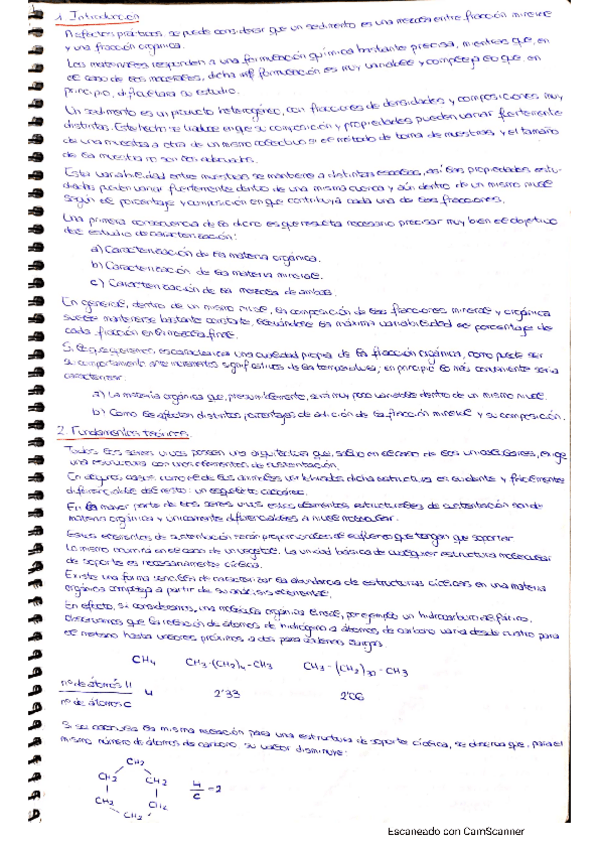 1. Introducción
A efectos prácticos se puede considerar que un sedimento es una mezcla entre fracción mineral
y una fracción orgánica.
Los materiales responden a una formulación química bastante precisa, mientras que, en
el caso de los macerales, dicha formulación es muy variable y compleja lo que en
principio, dificultaría su estudio.
Un sedimento es un producto heterogéneo, con fracciones de densidades y composiciones muy
distintas. Este hecho se traduce en que su composición y propiedades pueden variar fuertemente
de una muestra a otra de un mismo si el método de toma de muestras y el tamaño
de la muestra no son adecuados.
Esta variabilidad entre muestras se mantiene a distintas escalas, así las propiedades estu-
diadas pueden variar fuertemente dentro de una misma cuenca y aún dentro de un mismo nivel
según el porcentaje y composición en que contribuya cada una de las fracciones.
Una primera consecuencia de lo dicho es que resulta necesario precisar muy bien el objetivo
del estudio de caracterización:
a) Caracterización de la materia orgánica.
b) Caracterización de la materia mineral.
c) Caracterización de la mezcla de ambas.
En general, dentro de un mismo nivel, la composición de las fracciones mineral y orgánica
suele mantenerse bastante constante, la máxima variabilidad el porcentaje de
cada fracción en la mezcla final.
Si lo que queremos es caracterizar una cualidad propia de la fracción orgánica, como puede ser
su comportamiento ante incrementos significativos de la temperatura, en principio lo más conveniente sería
caracterizar:
a) La materia orgánica que, presumiblemente, será muy poco variable dentro de un mismo nivel.
b) Como le afectan distintos porcentajes de adición de la fracción mineral y su composición.
2. Fundamentos teóricos
Todos los seres vivos poseen una arquitectura que, salvo en el caso de los unicelulares, exige
una estructura con unos elementos de sustentación.
En algunos casos como el de los animales vertebrados dicha estructura es evidente y fácilmente
diferenciable del resto: un esqueleto
En la mayor parte de los seres vivos estos elementos estructurales de sustentación son de
materia orgánica y únicamente diferenciables a nivel molecular.
Estos elementos de sustentación serán proporcionales al esfuerzo que tengan que soportar.
Lo mismo ocurrirá en el caso de un vegetal. La unidad básica de cualquier estructura molecular
de soporte es necesariamente cíclica.
Existe una forma sencilla de caracterizar la abundancia de estructuras cíclicas en una materia
orgánica compleja a partir de su análisis elemental.
En efecto, si consideramos, una molécula orgánica lineal, por ejemplo un hidrocarburo alifático,
observamos que la relación de átomos de hidrógeno a átomos de carbono varía desde cuatro para
el metano hasta valores próximos a dos para cadenas largas.
CH4 CH3-(CH2)4-CH3 CH3-(CH2)30-CH3
nº de átomos H
nº de átomos C
4 2'33 2'06
Si se calcula la misma relación para una estructura de soporte cíclica, se observa que, para el
mismo número de átomos de carbono su valor disminuye:
CH2
CH2 CH2
CH2 CH2
CH2
H/C = 2
Escaneado con CamScanner